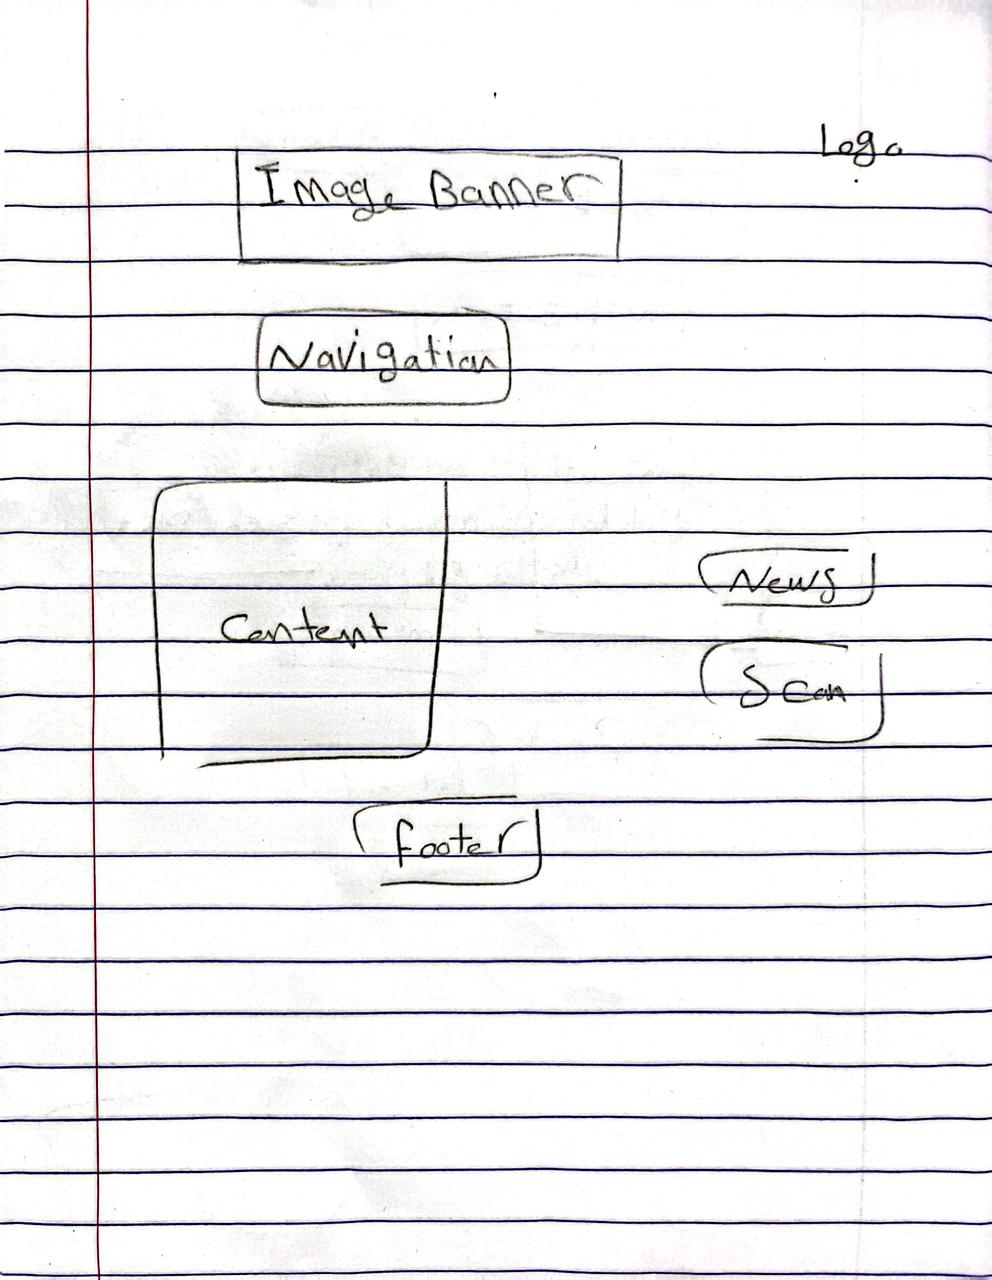 Logo
Image Banner
Navigation
News
Content
Scan
footer